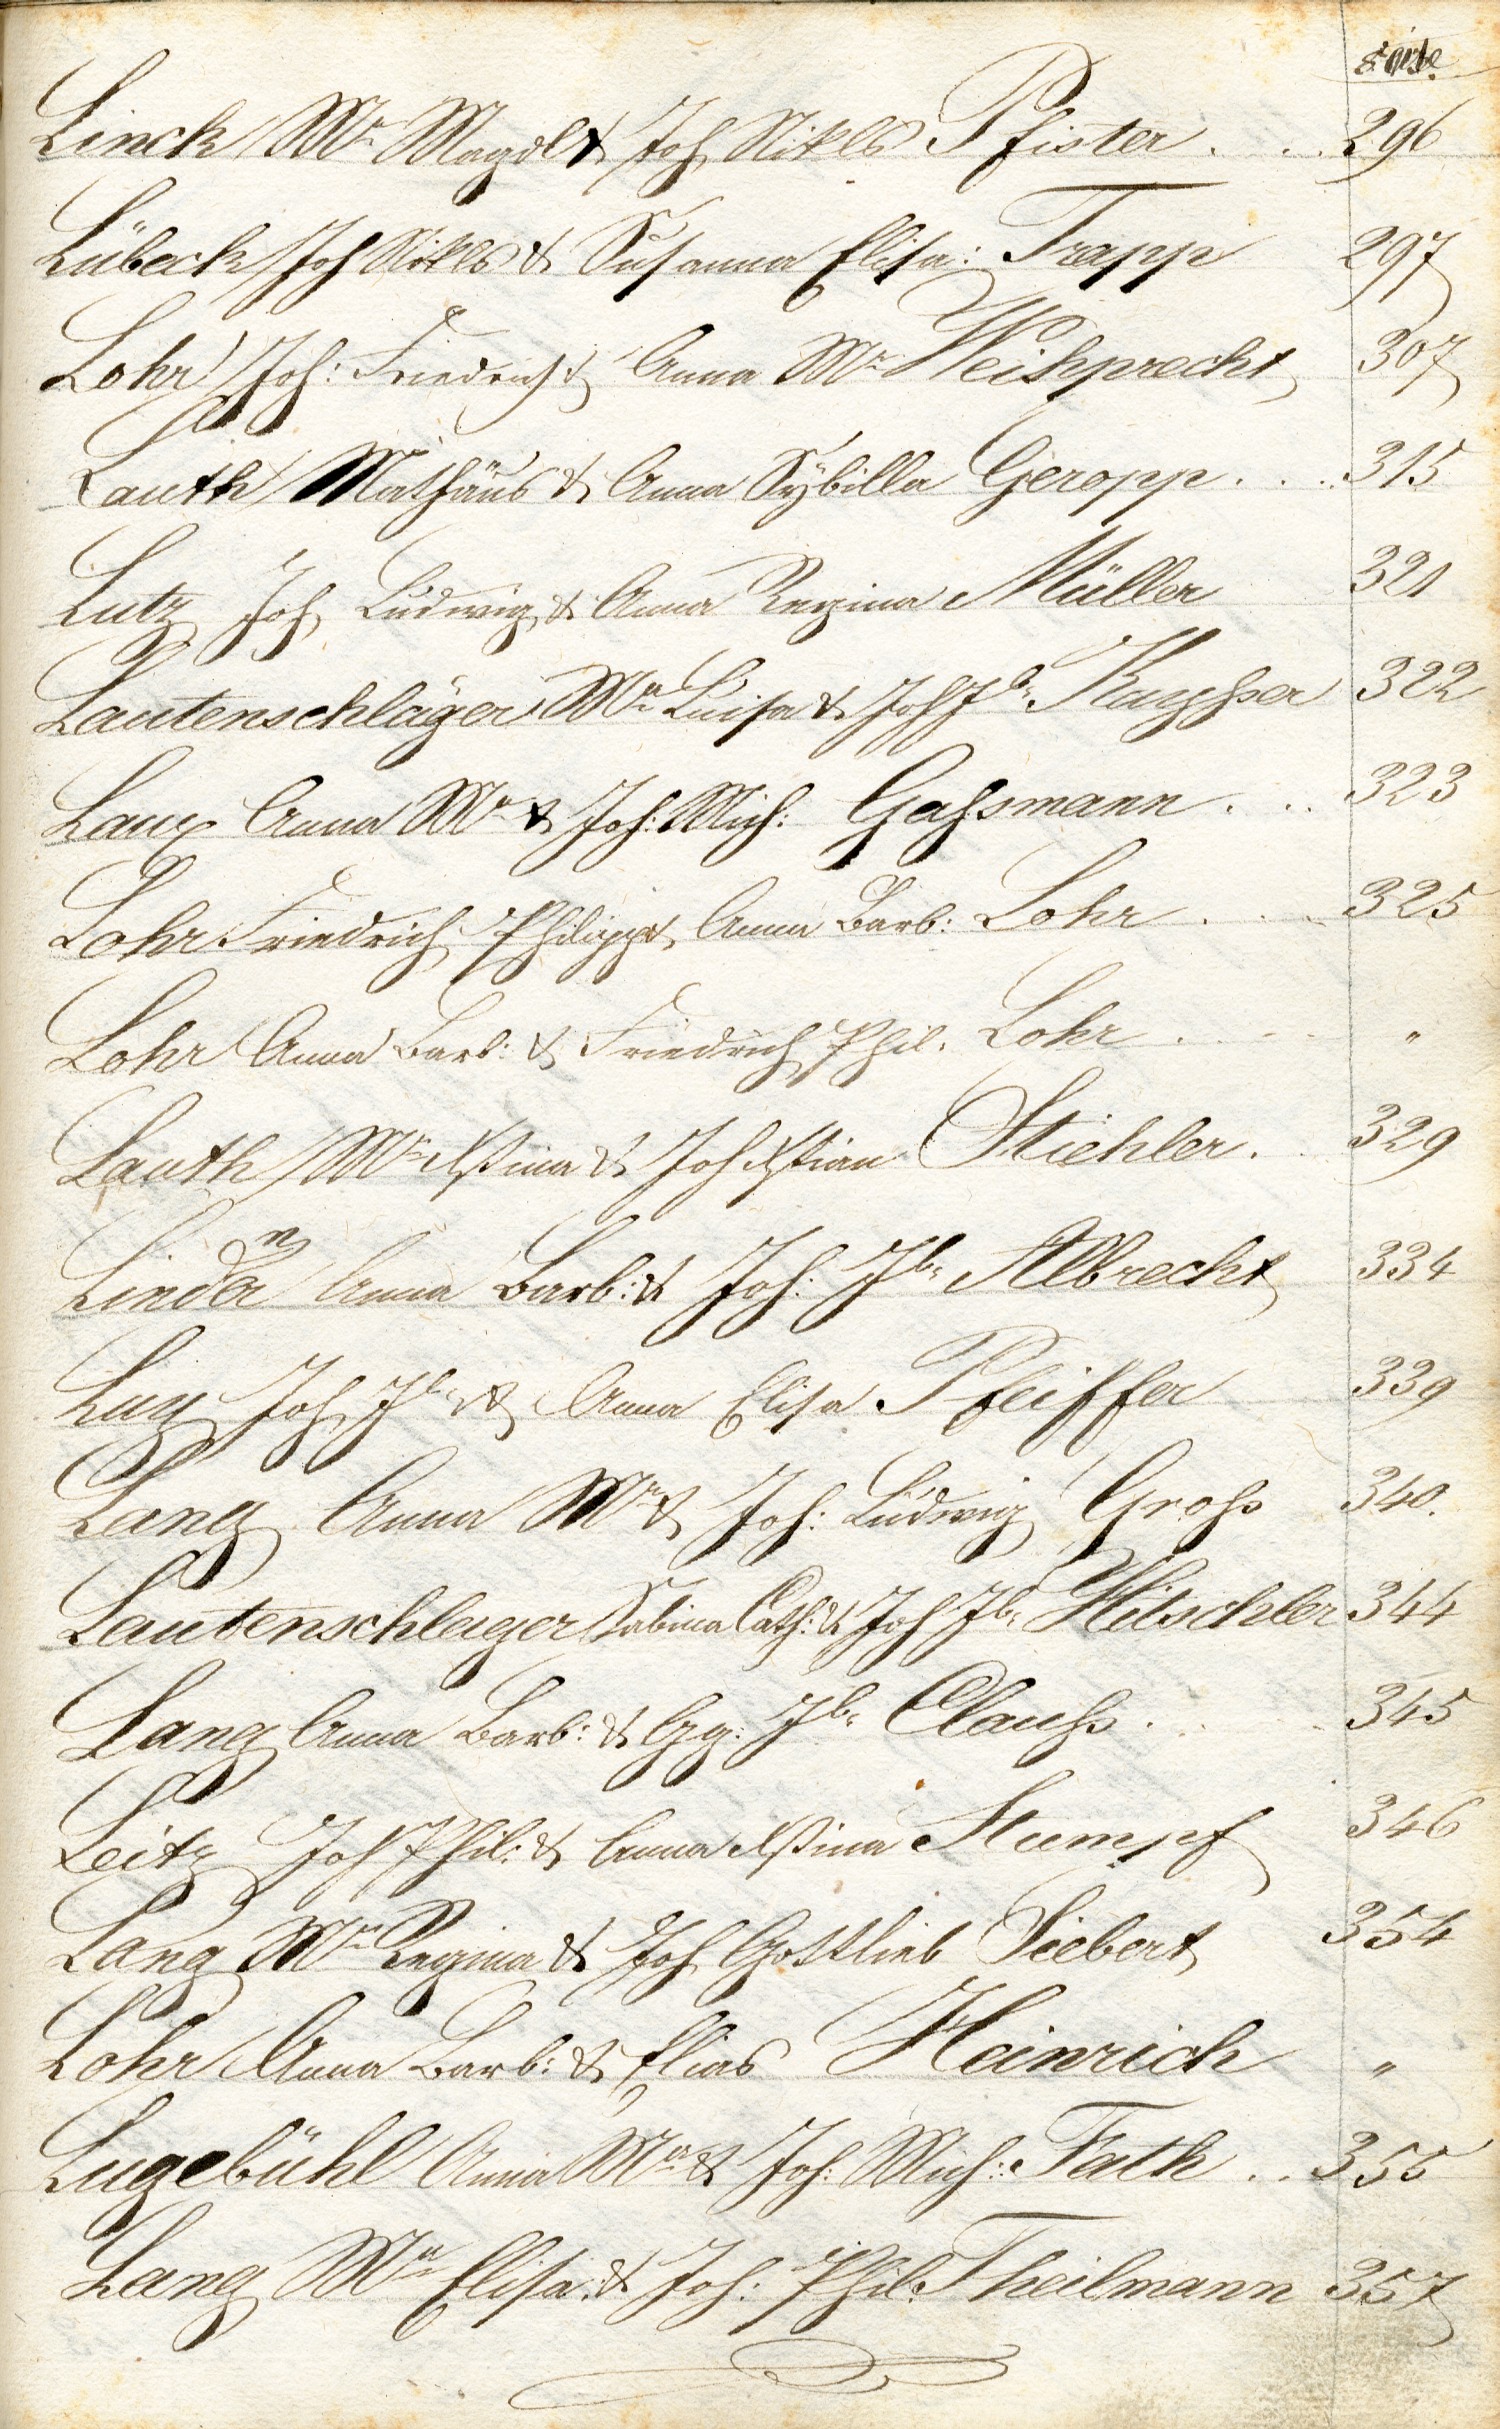 Seite.
Linck Mr Magdl & Joh Nikls Pfister . . . 296
Lübeck Joh Nikls & Susanna Elisa: Trapp 297
Lohr Joh: Friedrich & Anna Mr Weihprecht 307
Lauth Mathäus & Anna Sybilla Geropp . . . 315
Lutz Joh Ludwig & Anna Regina Müller 321
Lautenschläger Mr Luisa & Joh Jb. Kaysser 322
Laux Anna Mr & Joh: Mich: Gaßmann . . . 323
Lohr Friedrich Philipp & Anna Barb: Lohr . . . 325
Lohr Anna Barb: & Friedrich Phil. Lohr . . . "
Lauth Mr Xstina & Joh Xstian Stiehler. 329
Linder Anna Barb: & Joh: Jb. Albrecht 334
Luy Joh Jb. & Anna Elisa Pfeiffer 339
Lang Anna Mr & Joh: Ludwig Groß 340.
Lautenschlager Sabina Cath: & Joh Jb. Hitschler 344
Lang Anna Barb: & Gg: Jb. Clauß . . . 345
Leitz Joh Phil: & Anna Xstina Stumpf 346
Lang Mr Regina & Joh Gottlieb Siebert 354
Lohr Anna Barb: & Elias Heinrich "
Lugebühl Anna Mr & Joh: Mich: Fath . . 355
Lang Mr Elisa: & Joh: Phil: Theilmann 357